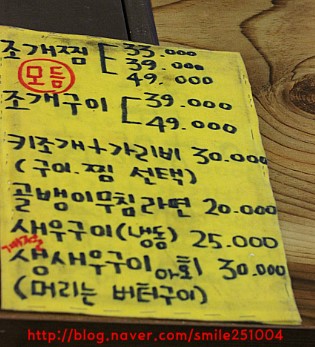 조개찜 33.000
39.000
모듬
49.000
조개구이 39.000
49.000
키조개+가리비 30.000
(구이.찜 선택)
골뱅이무침라면 20.000
새우구이(냉동) 25.000
계절
생새우구이 아회 30.000
(머리는 버터구이)
http://blog.naver.com/smile251004